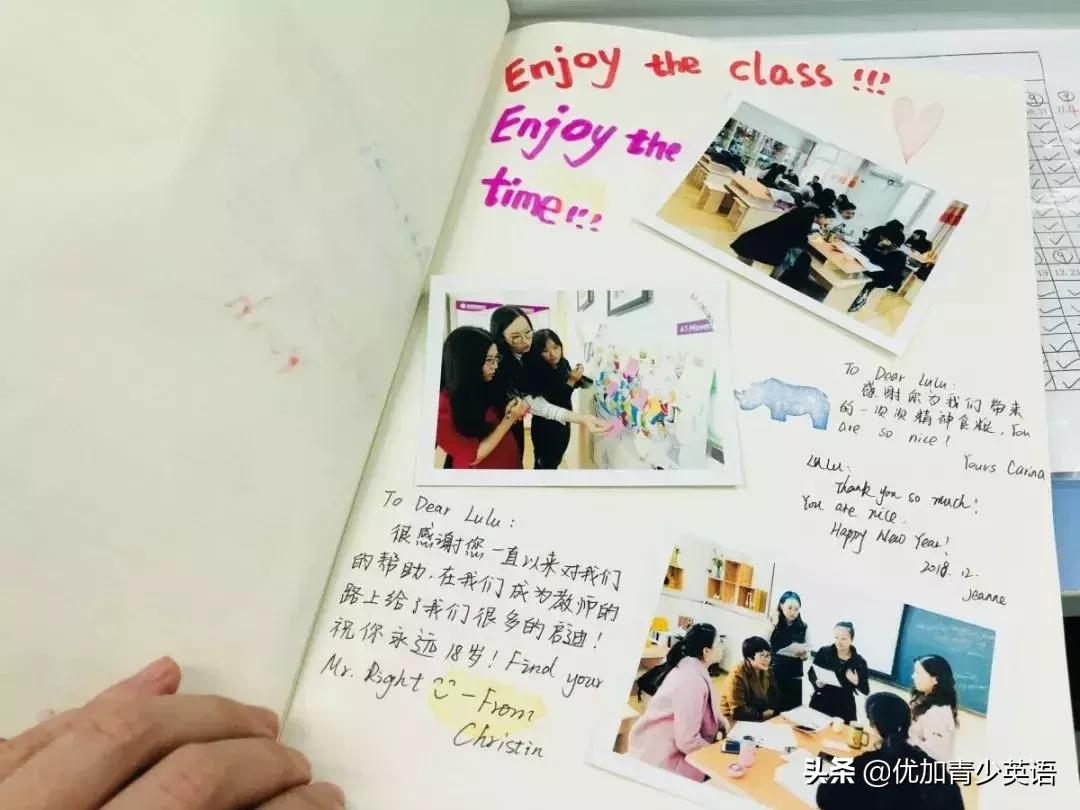 Enjoy the class!!!
Enjoy the
time!!!
A1 Movers
To Dear Lulu:
感谢你为我们带来
的一次次精神食粮, You
are so nice!
Yours Carina
Lulu:
Thank you so much!
You are nice.
Happy New Year!
2018.12.
Jeanne
To Dear Lulu:
很感谢您一直以来对我们
的帮助,在我们成为教师的
路上给了我们很多的启迪!
祝你永远18岁! Find your
Mr. Right -From
Christin
头条 @优加青少英语